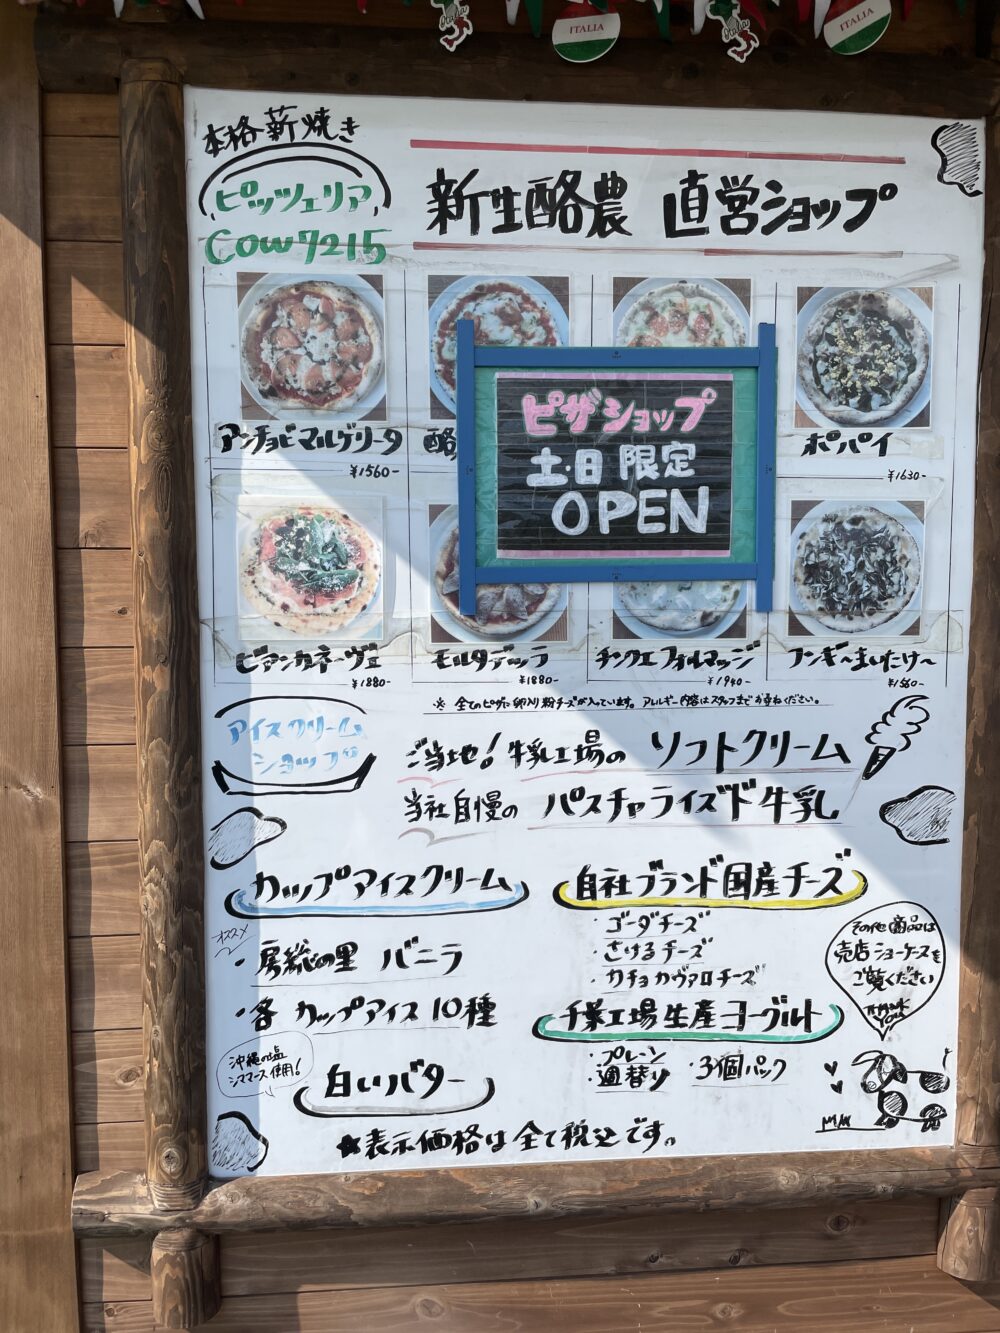 ITALIA
ITALIA
本格薪焼き
ピッツェリア
COW7215
新生酪農 直営ショップ
ピザショップ
土・日 限定
OPEN
アンチョビマルゲリータ
¥1560-
酪
ポパイ
¥1630-
ビアンカネーヴェ
¥1880-
モルタデッラ
¥1880-
チンクエフォルマッジ
¥1940-
フンギ〜まいたけ〜
¥1560-
※ 全てのピザに卵入り粉チーズが入っています。アレルギー内容はスタッフまでお尋ねください。
アイスクリーム
ショップ
ご当地!牛乳工場の ソフトクリーム
当社自慢の パスチャライズド牛乳
カップアイスクリーム
オススメ
・房総の里 バニラ
・各 カップアイス 10種
沖縄の塩
シママース使用!
白いバター
自社ブランド国産チーズ
・ゴーダチーズ
・さけるチーズ
・カチョカヴァロチーズ
千葉工場生産ヨーグルト
・プレーン ・3個パック
・週替り
その他商品は
売店ショーケースを
ご覧ください
THANK
YOU
★表示価格は全て税込です。